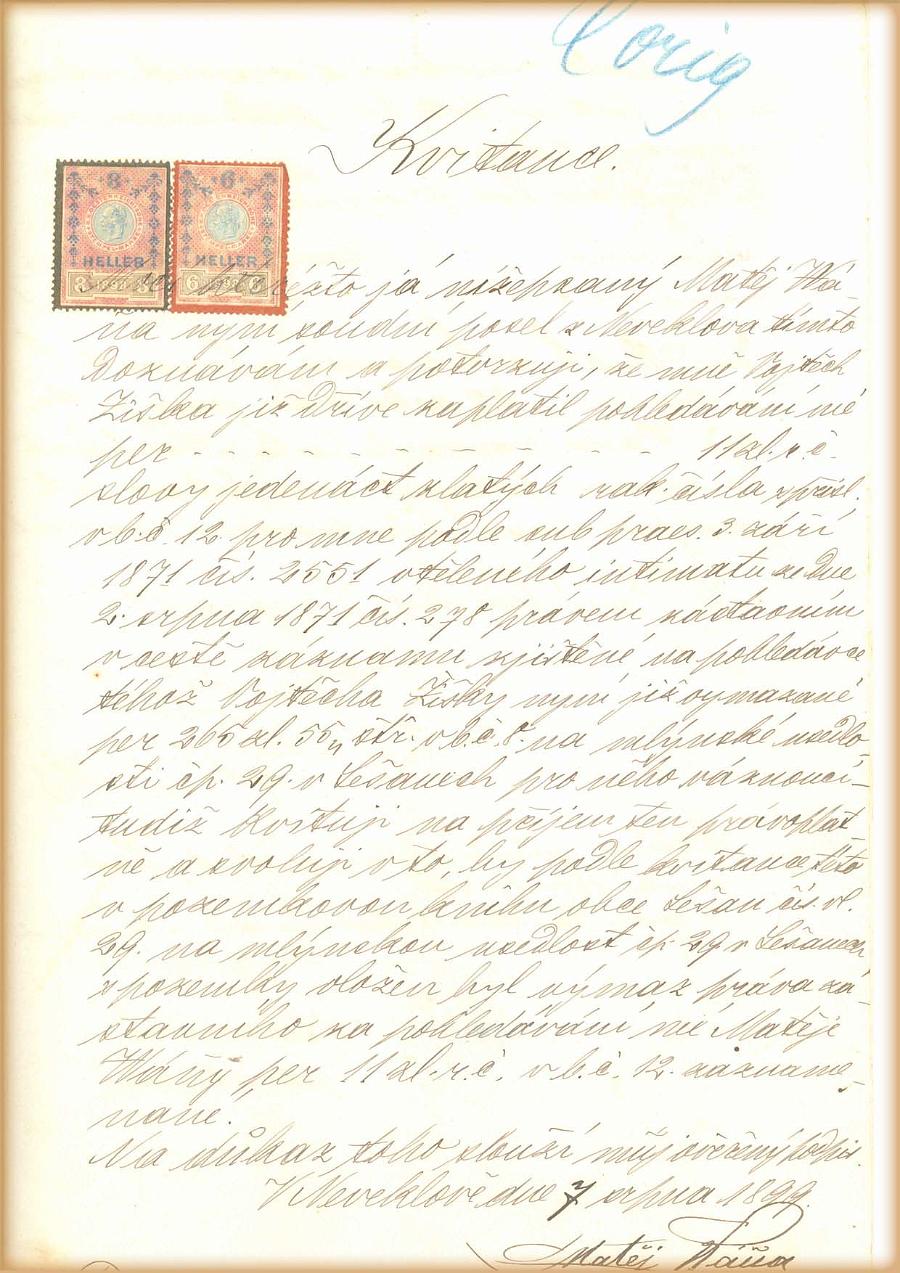 orig
Kvitance.
8 6
HELLER HELLER
8 1898 8 6 1898 6
já nížepsaný Matěj Wá-
ňa nyní soudní posel z Neveklova tímto
doznávám a potvrzuji, že mně Vojtěch
Žiška již dříve zaplatil pohledávání mé
per - - - - - - - - - - - - 11 zl. r. č.
slovy jedenáct zlatých rak. čísla s přísl.
v b. č. 12. pro mne podle sub praes. 3. září
1871 čís. 2551 vtěleného intimatu ze dne
2. srpna 1871 čís. 278 právem zástavním
v cestě záznamu zjištěné na pohledávce
téhož Vojtěcha Žišky nyní již vymazané
per 265 zl. 55 " stř. v b. č. 8. na mlýnské usedlo-
sti čp. 29. v Lešanech pro něho váznoucí-
tudiž kvituji na příjem ten právoplat
ně a svoluji v to, by podle kvitance této
v pozemkovou knihu obce Lešan čís. vl.
29. na mlýnskou usedlost čp. 29 v Lešanech
s pozemky vložen byl výmaz práva zá-
stavního za pohledávání mé Matěje
Wáňy per 11 zl. r. č. v b. č. 12. zazname-
nané.
Na důkaz toho slouží můj ověřený podpis.
V Neveklově dne 7 srpna 1899.
Matěj Wáňa